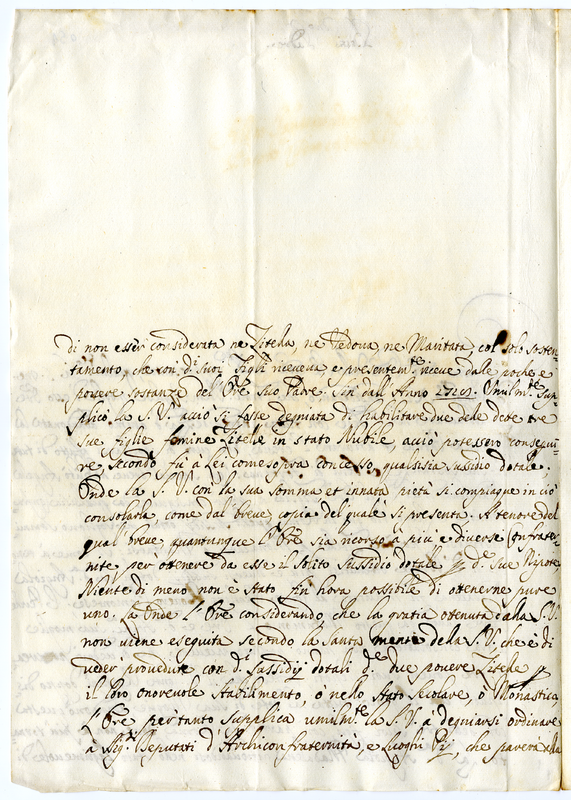 di non esser considerata ne Zitella, ne Vedova, ne Maritata, col solo sosten-
tamento, che con di Suoi Figli riceveva e presentem.te riceve dale poche e
povere sostanze del' Ore suo Padre. Sin dall' Anno Umilm.te sup
plicò la S. V. acciò si fosse degniata di riabilitare due dele dete tre
sue figlie femine Zitelle in stato Nubile, acciò potessero consegui-
re, secondo fù à Lei come sopra concesso, qualsisia sussidio dotale.
Onde la S. V. con la sua somma et innata pietà si compiaque in ciò
consolarla, come dal breve, copia del quale si presenta. A tenore del
qual breve quantunque l' Ore sia ricorso à più e diverse Confrater-
nite per ottenere da esse il solito sussidio dotale p de sue Nipote
Niente di meno non è stato fin hora possibile di ottenerne pure
uno. La Onde l' Ore considerando, che la gratia ottenuta dalla S. V.
non viene eseguita secondo la santa mente dela S. V. che è di
veder provedute con di Sussidij dotali de due povere Zitelle p
il loro onorevole stabilimento, o nello Stato Secolare, ò Monastica
L' Ore per tanto supplica umilm.te la S. V. a degniarsi ordinare
à Sig.ri Deputati d' Archiconfraternità, e Luoghi Pij, che parerà alla